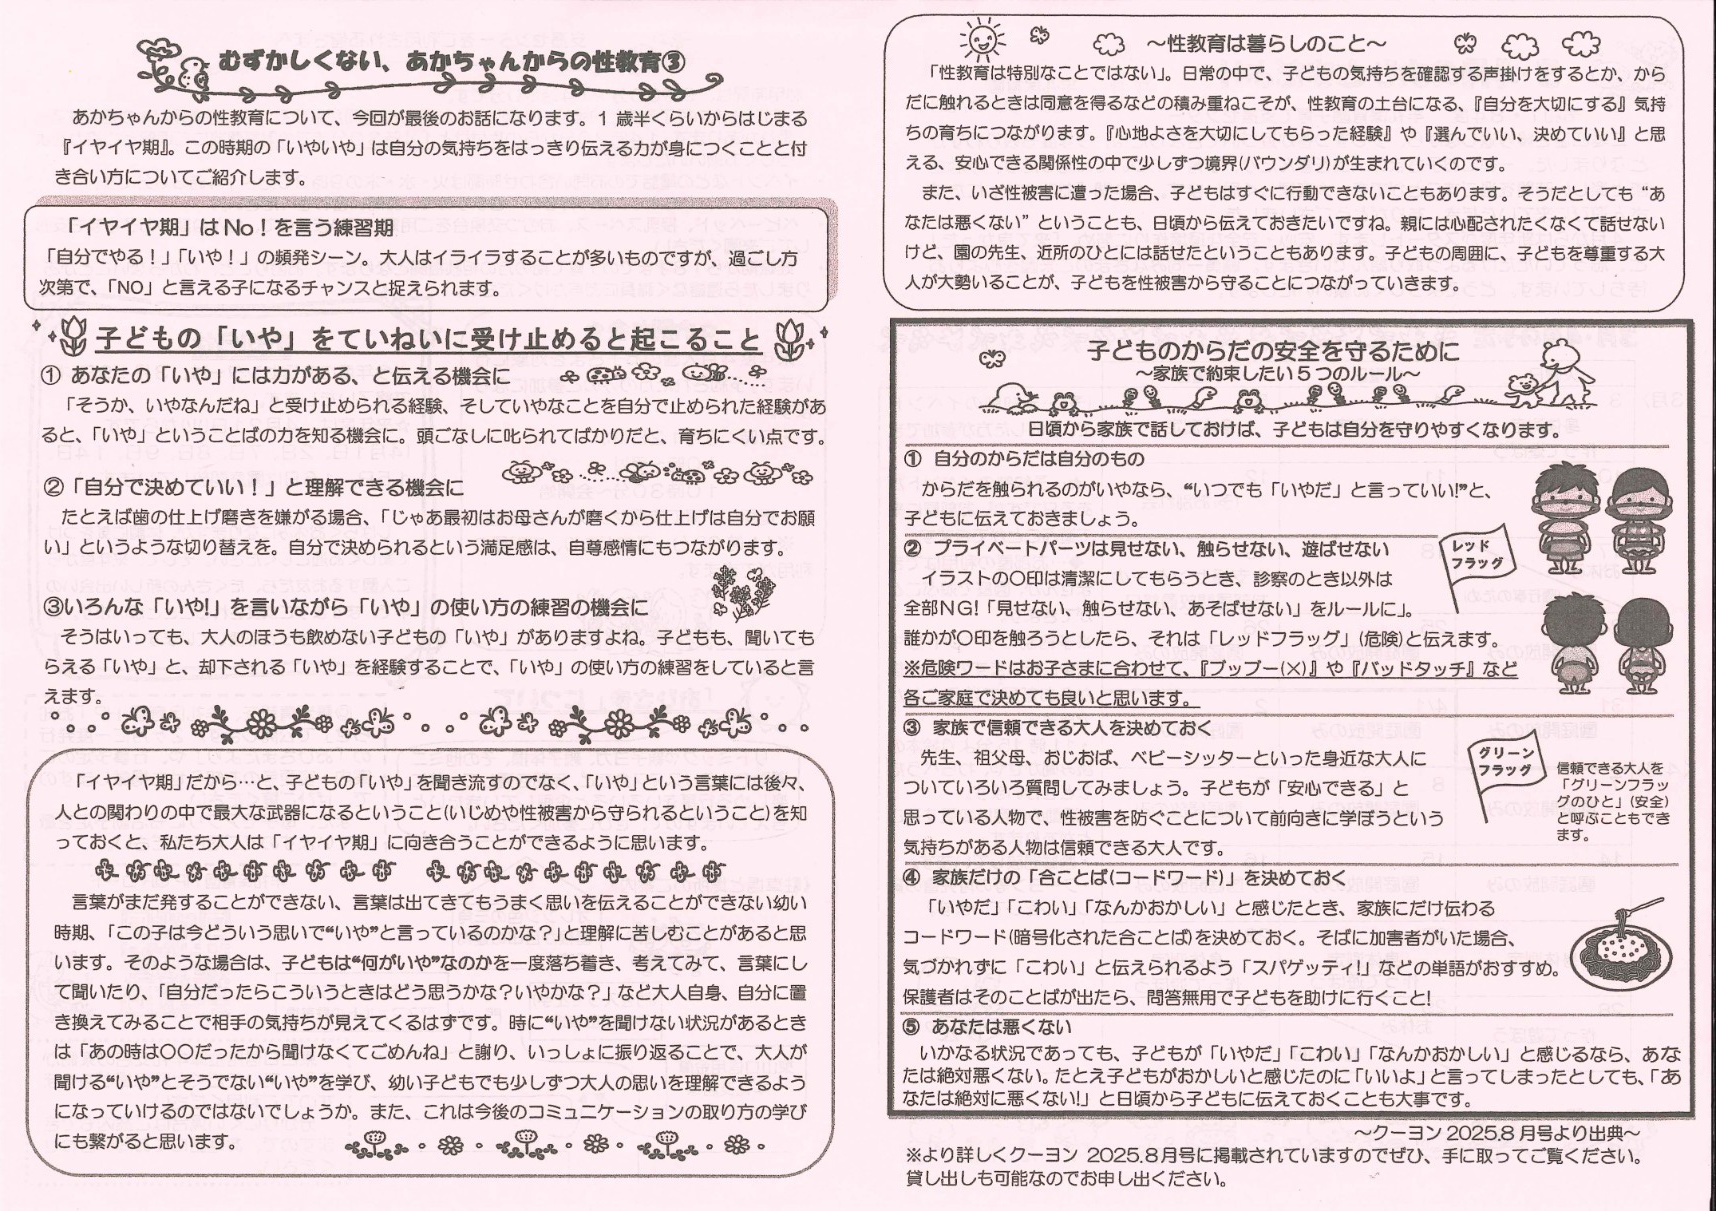 むずかしくない、あかちゃんからの性教育③
あかちゃんからの性教育について、今回が最後のお話になります。1歳半くらいからはじまる
『イヤイヤ期』。この時期の「いやいや」は自分の気持ちをはっきり伝える力が身につくことと付
き合い方についてご紹介します。
「イヤイヤ期」はNo！を言う練習期
「自分でやる！」「いや！」の頻発シーン。大人はイライラすることが多いものですが、過ごし方
次第で、「NO」と言える子になるチャンスと捉えられます。
子どもの「いや」をていねいに受け止めると起こること
① あなたの「いや」には力がある、と伝える機会に
「そうか、いやなんだね」と受け止められる経験、そしていやなことを自分で止められた経験があ
ると、「いや」ということばの力を知る機会に。頭ごなしに叱られてばかりだと、育ちにくい点です。
②「自分で決めていい！」と理解できる機会に
たとえば歯の仕上げ磨きを嫌がる場合、「じゃあ最初はお母さんが磨くから仕上げは自分でお願
い」というような切り替えを。自分で決められるという満足感は、自尊感情にもつながります。
③いろんな「いや!」を言いながら「いや」の使い方の練習の機会に
そうはいっても、大人のほうも飲めない子どもの「いや」がありますよね。子どもも、聞いても
らえる「いや」と、却下される「いや」を経験することで、「いや」の使い方の練習をしていると言
えます。
「イヤイヤ期」だから…と、子どもの「いや」を聞き流すのでなく、「いや」という言葉には後々、
人との関わりの中で最大な武器になるということ(いじめや性被害から守られるということ)を知
っておくと、私たち大人は「イヤイヤ期」に向き合うことができるように思います。
言葉がまだ発することができない、言葉は出てきてもうまく思いを伝えることができない幼い
時期、「この子は今どういう思いで“いや”と言っているのかな？」と理解に苦しむことがあると思
います。そのような場合は、子どもは“何がいや”なのかを一度落ち着き、考えてみて、言葉にし
て聞いたり、「自分だったらこういうときはどう思うかな？いやかな？」など大人自身、自分に置
き換えてみることで相手の気持ちが見えてくるはずです。時に“いや”を聞けない状況があるとき
は「あの時は〇〇だったから聞けなくてごめんね」と謝り、いっしょに振り返ることで、大人が
聞ける“いや”とそうでない“いや”を学び、幼い子どもでも少しずつ大人の思いを理解できるよう
になっていけるのではないでしょうか。また、これは今後のコミュニケーションの取り方の学び
にも繋がると思います。
～性教育は暮らしのこと～
「性教育は特別なことではない」。日常の中で、子どもの気持ちを確認する声掛けをするとか、から
だに触れるときは同意を得るなどの積み重ねこそが、性教育の土台になる、『自分を大切にする』気持
ちの育ちにつながります。『心地よさを大切にしてもらった経験』や『選んでいい、決めていい』と思
える、安心できる関係性の中で少しずつ境界(バウンダリ)が生まれていくのです。
また、いざ性被害に遭った場合、子どもはすぐに行動できないこともあります。そうだとしても“あ
なたは悪くない”ということも、日頃から伝えておきたいですね。親には心配されたくなくて話せない
けど、園の先生、近所のひとには話せたということもあります。子どもの周囲に、子どもを尊重する大
人が大勢いることが、子どもを性被害から守ることにつながっていきます。
子どものからだの安全を守るために
～家族で約束したい５つのルール～
日頃から家族で話しておけば、子どもは自分を守りやすくなります。
① 自分のからだは自分のもの
からだを触られるのがいやなら、“いつでも「いやだ」と言っていい!”と、
子どもに伝えておきましょう。
② プライベートパーツは見せない、触らせない、遊ばせない
イラストの〇印は清潔にしてもらうとき、診察のとき以外は
全部NG!「見せない、触らせない、あそばせない」をルールに」。
誰かが〇印を触ろうとしたら、それは「レッドフラッグ」(危険)と伝えます。
※危険ワードはお子さまに合わせて、『ブップー(×)』や『バッドタッチ』など
各ご家庭で決めても良いと思います。
レッド
フラッグ
③ 家族で信頼できる大人を決めておく
先生、祖父母、おじおば、ベビーシッターといった身近な大人に
ついていろいろ質問してみましょう。子どもが「安心できる」と
思っている人物で、性被害を防ぐことについて前向きに学ぼうという
気持ちがある人物は信頼できる大人です。
グリーン
フラッグ
信頼できる大人を
「グリーンフラッ
グのひと」(安全)
と呼ぶこともでき
ます。
④ 家族だけの「合ことば(コードワード)」を決めておく
「いやだ」「こわい」「なんかおかしい」と感じたとき、家族にだけ伝わる
コードワード(暗号化された合ことば)を決めておく。そばに加害者がいた場合、
気づかれずに「こわい」と伝えられるよう「スパゲッティ!」などの単語がおすすめ。
保護者はそのことばが出たら、問答無用で子どもを助けに行くこと!
⑤ あなたは悪くない
いかなる状況であっても、子どもが「いやだ」「こわい」「なんかおかしい」と感じるなら、あな
たは絶対悪くない。たとえ子どもがおかしいと感じたのに「いいよ」と言ってしまったとしても、「あ
なたは絶対に悪くない!」と日頃から子どもに伝えておくことも大事です。
～クーヨン 2025.8月号より出典～
※より詳しくクーヨン 2025.8月号に掲載されていますのでぜひ、手に取ってご覧ください。
貸し出しも可能なのでお申し出ください。